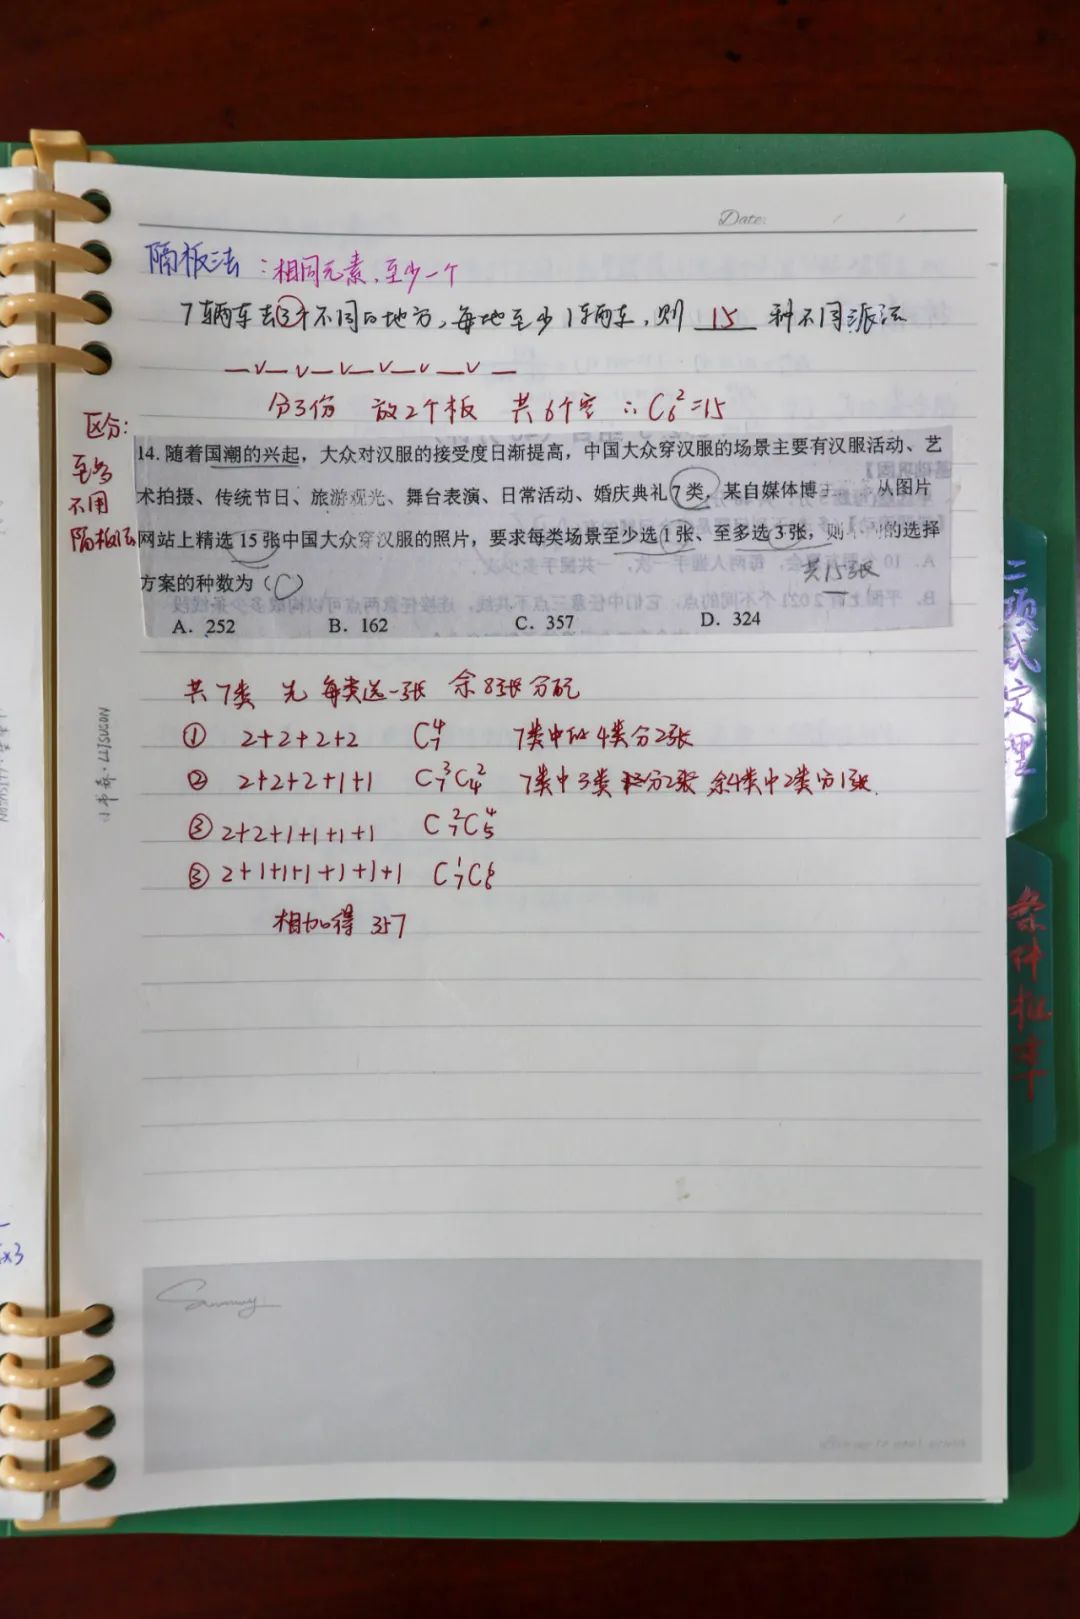 Date: / /
隔板法:相同元素、至少一个
7辆车去3个不同的地方,每地至少1辆车,则 15 种不同派法
分3份 放2个板 共6个空 ∴C₆²=15
区分:
至多
不用
隔板法
14. 随着国潮的兴起,大众对汉服的接受度日渐提高,中国大众穿汉服的场景主要有汉服活动、艺
术拍摄、传统节日、旅游观光、舞台表演、日常活动、婚庆典礼7类,某自媒体博 从图片
网站上精选15张中国大众穿汉服的照片,要求每类场景至少选1张、至多选3张,则 的选择
共15张
方案的种数为(C)
A. 252 B. 162 C. 357 D. 324
共7类 先每类选一张 余8张分配
① 2+2+2+2 C₇⁴ 7类中的4类分2张
② 2+2+2+1+1 C₇³C₄² 7类中3类分2张 余4类中2类分1张.
③ 2+2+1+1+1+1 C₇²C₅⁴
③ 2+1+1+1+1+1+1 C₇¹C₆
相加得 357
二项式定理
条件概率
×3
Sammy